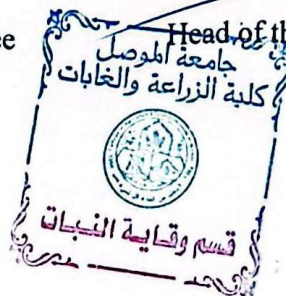 Head of th
ee
جامعة الموصل
كلية الزراعة والغابات
قسم وقاية النبات